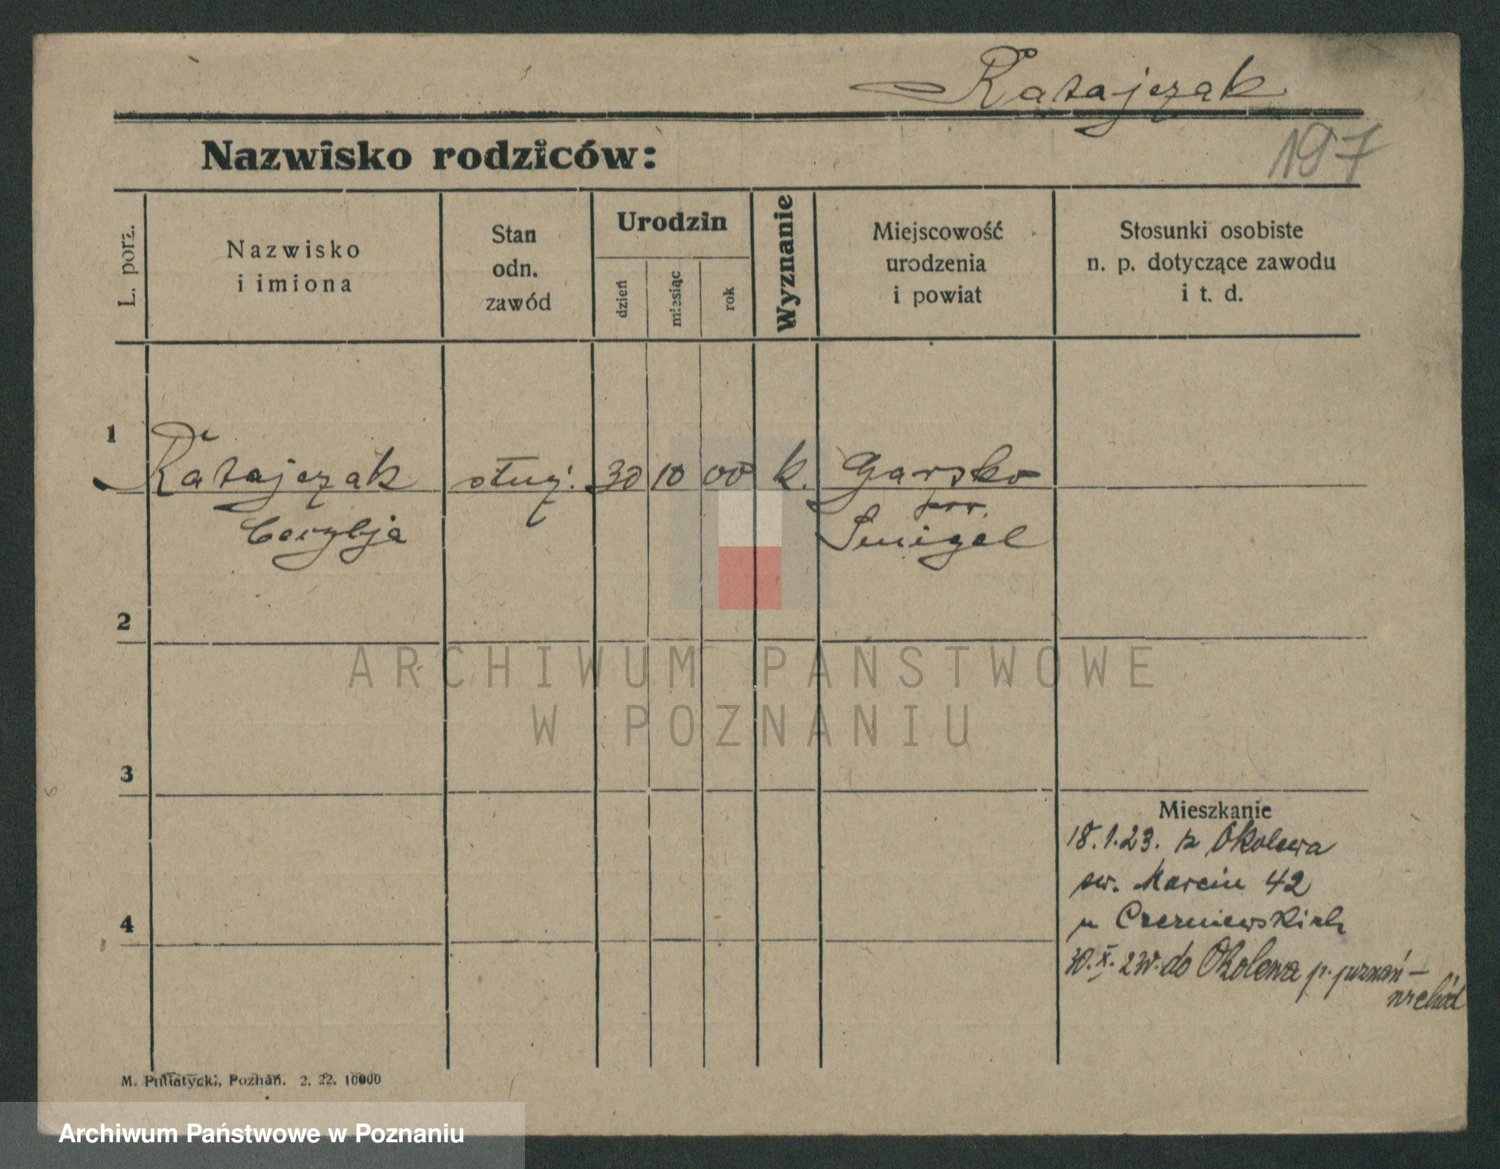 Ratajczak
197
Nazwisko rodziców:
L. porz.
Nazwisko
i imiona
Stan
odn.
zawód
Urodzin
dzień
miesiąc
rok
Wyznanie
Miejscowość
urodzenia
i powiat
Stosunki osobiste
n. p. dotyczące zawodu
i t. d.
1
Ratajczak służ. 30 10 00 k. Garsko
pow.
Cecylja Śmigel
2
ARCHIWUM PAŃSTWOWE
W POZNANIU
3
Mieszkanie
18.1.23. z Okolewa
św. Marcin 42
u Czerniewskich
4
30.X.23 w. do Okolewa p. poznań –
wschód
M. Putiatycki, Poznań. 2. 22. 10000
Archiwum Państwowe w Poznaniu